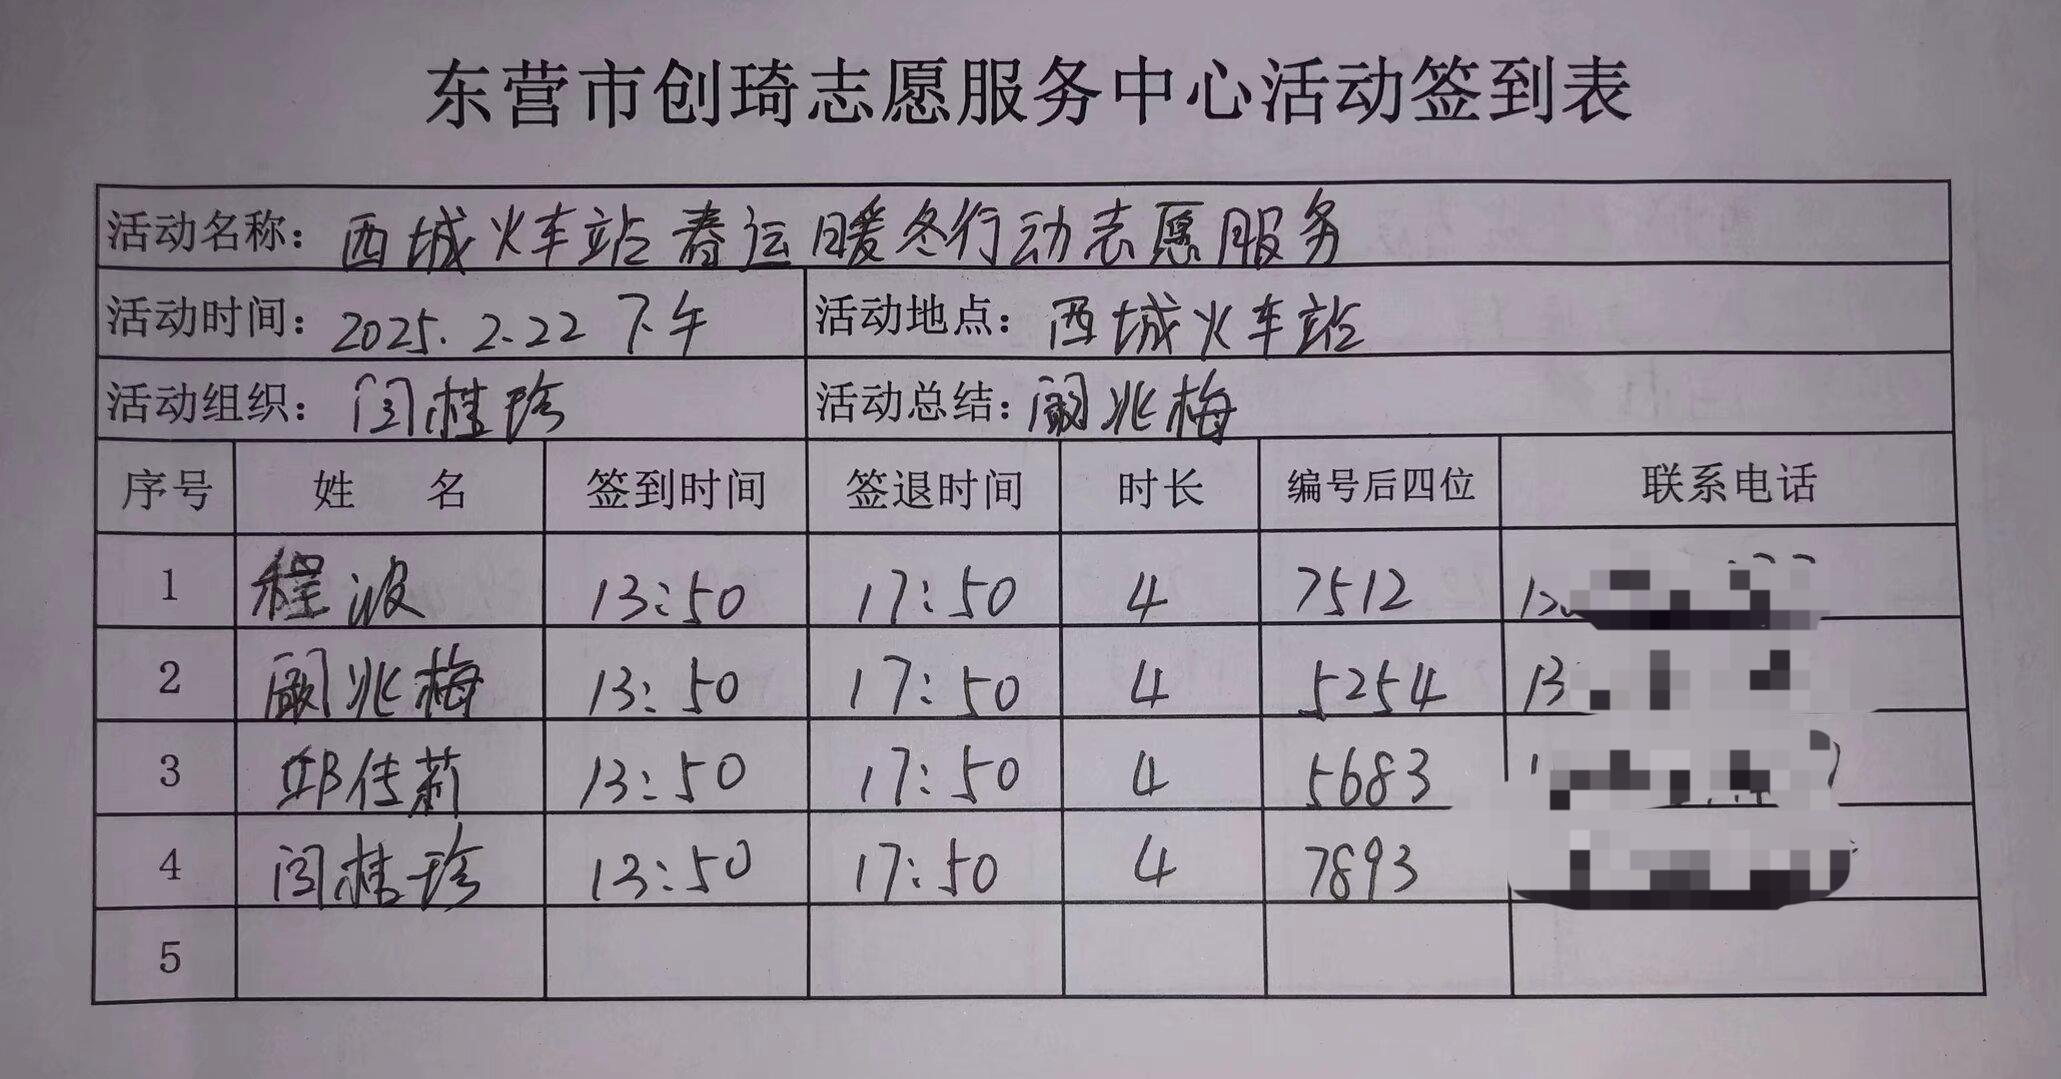 东营市创琦志愿服务中心活动签到表
活动名称：西城火车站春运暖冬行动志愿服务
活动时间：2025.2.22 下午 活动地点：西城火车站
活动组织：闫桂珍 活动总结：阚兆梅
序号 姓 名 签到时间 签退时间 时长 编号后四位 联系电话
1 程波 13:50 17:50 4 7512
2 阚兆梅 13:50 17:50 4 5254 13
3 邱佳莉 13:50 17:50 4 5683
4 闫桂珍 13:50 17:50 4 7893
5